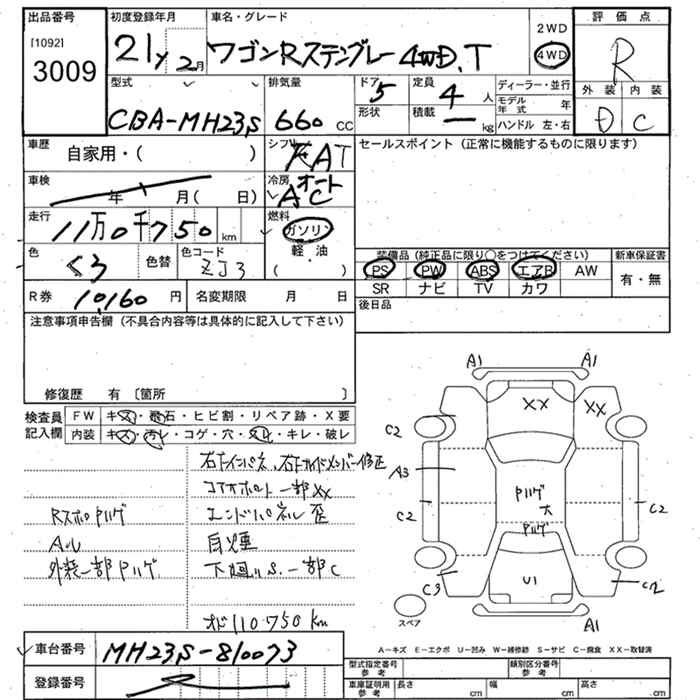 出品番号
[1092]
3009
初度登録年月
21y 2月
車名・グレード
ワゴンRスティングレー 4WD,T
2WD
4WD
評価点
R
外装 内装
D C
型式
CBA-MH23S
排気量
660 CC
ドア 5
形状
定員 4 人
積載 ー kg
ディーラー・並行
モデル年式 年
ハンドル 左・右
車歴
自家用・( )
シフト
FAT
セールスポイント (正常に機能するものに限ります)
車検
年 月( 日)
冷房
オート
AC
走行
11万0千750 km
燃料
ガソリン
軽・油
( )
色
くろ
色替
色コード
ZJ3
装備品 (純正品に限り○をつけてください)
PS PW ABS エアB AW
SR ナビ TV カワ
新車保証書
有・無
R券 10160 円
名変期限 月 日
後日品
注意事項申告欄 (不具合内容等は具体的に記入して下さい)
修復歴 有 〔箇所 〕
検査員記入欄
FW キズ・飛石・ヒビ割・リペア跡・X要
内装 キズ・汚レ・コゲ・穴・スレ・キレ・破レ
コアサポート一部XX
Rスポ Pハゲ
エンドパネル歪
A/W
自煙
外装一部Pハゲ
下廻りS.一部C
オド110750km
A1 A1
XX XX
C2
A3
C2
Pハゲ
大
Pハゲ
C2
C3
U1
C2
A1
スペア
A-キズ E-エクボ U-凹み W-補修跡 S-サビ C-腐食 XX-取替済
車台番号 MH23S-810073
登録番号
型式指定番号 参考
類別区分番号 参考
車庫証明用 参考
長さ cm
幅 cm
高さ cm